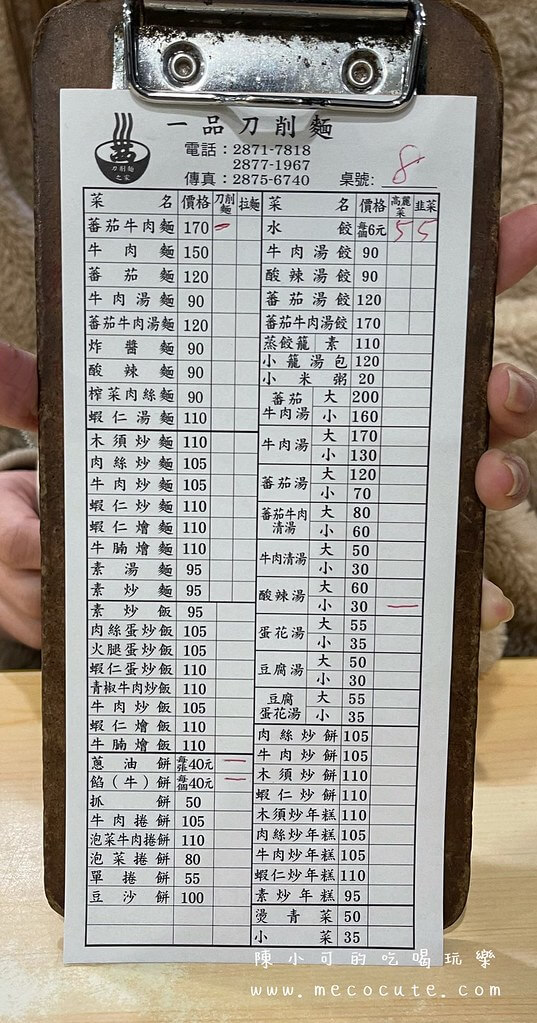 一品刀削麵
刀削麵
之家
電話：2871-7818
2877-1967
傳真：2875-6740
桌號：8
菜名 價格 刀削麵 拉麵
蕃茄牛肉麵 170 一
牛肉麵 150
蕃茄麵 120
牛肉湯麵 90
蕃茄牛肉湯麵 120
炸醬麵 90
酸辣麵 90
榨菜肉絲麵 90
蝦仁湯麵 110
木須炒麵 110
肉絲炒麵 105
牛肉炒麵 105
蝦仁炒麵 110
蝦仁燴麵 110
牛腩燴麵 110
素湯麵 95
素炒麵 95
素炒飯 95
肉絲蛋炒飯 105
火腿蛋炒飯 105
蝦仁蛋炒飯 110
青椒牛肉炒飯 110
牛肉炒飯 105
蝦仁燴飯 110
牛腩燴飯 110
蔥油餅 每張40元 一
餡（牛）餅 每個40元 一
抓餅 50
牛肉捲餅 105
泡菜牛肉捲餅 110
泡菜捲餅 80
單捲餅 55
豆沙餅 100
菜名 價格 高麗菜 韭菜
水餃 每個6元 5 5
牛肉湯餃 90
酸辣湯餃 90
蕃茄湯餃 120
蕃茄牛肉湯餃 170
蒸餃籠素 110
小籠湯包 120
小米粥 20
蕃茄牛肉湯 大 200
小 160
牛肉湯 大 170
小 130
蕃茄湯 大 120
小 70
蕃茄牛肉清湯 大 80
小 60
牛肉清湯 大 50
小 30
酸辣湯 大 60
小 30 一
蛋花湯 大 55
小 35
豆腐湯 大 50
小 30
豆腐蛋花湯 大 55
小 35
肉絲炒餅 105
牛肉炒餅 105
木須炒餅 110
蝦仁炒餅 110
木須炒年糕 110
肉絲炒年糕 105
牛肉炒年糕 105
蝦仁炒年糕 110
素炒年糕 95
燙青菜 50
小菜 35
陳小可的吃喝玩樂
www.mecocute.com